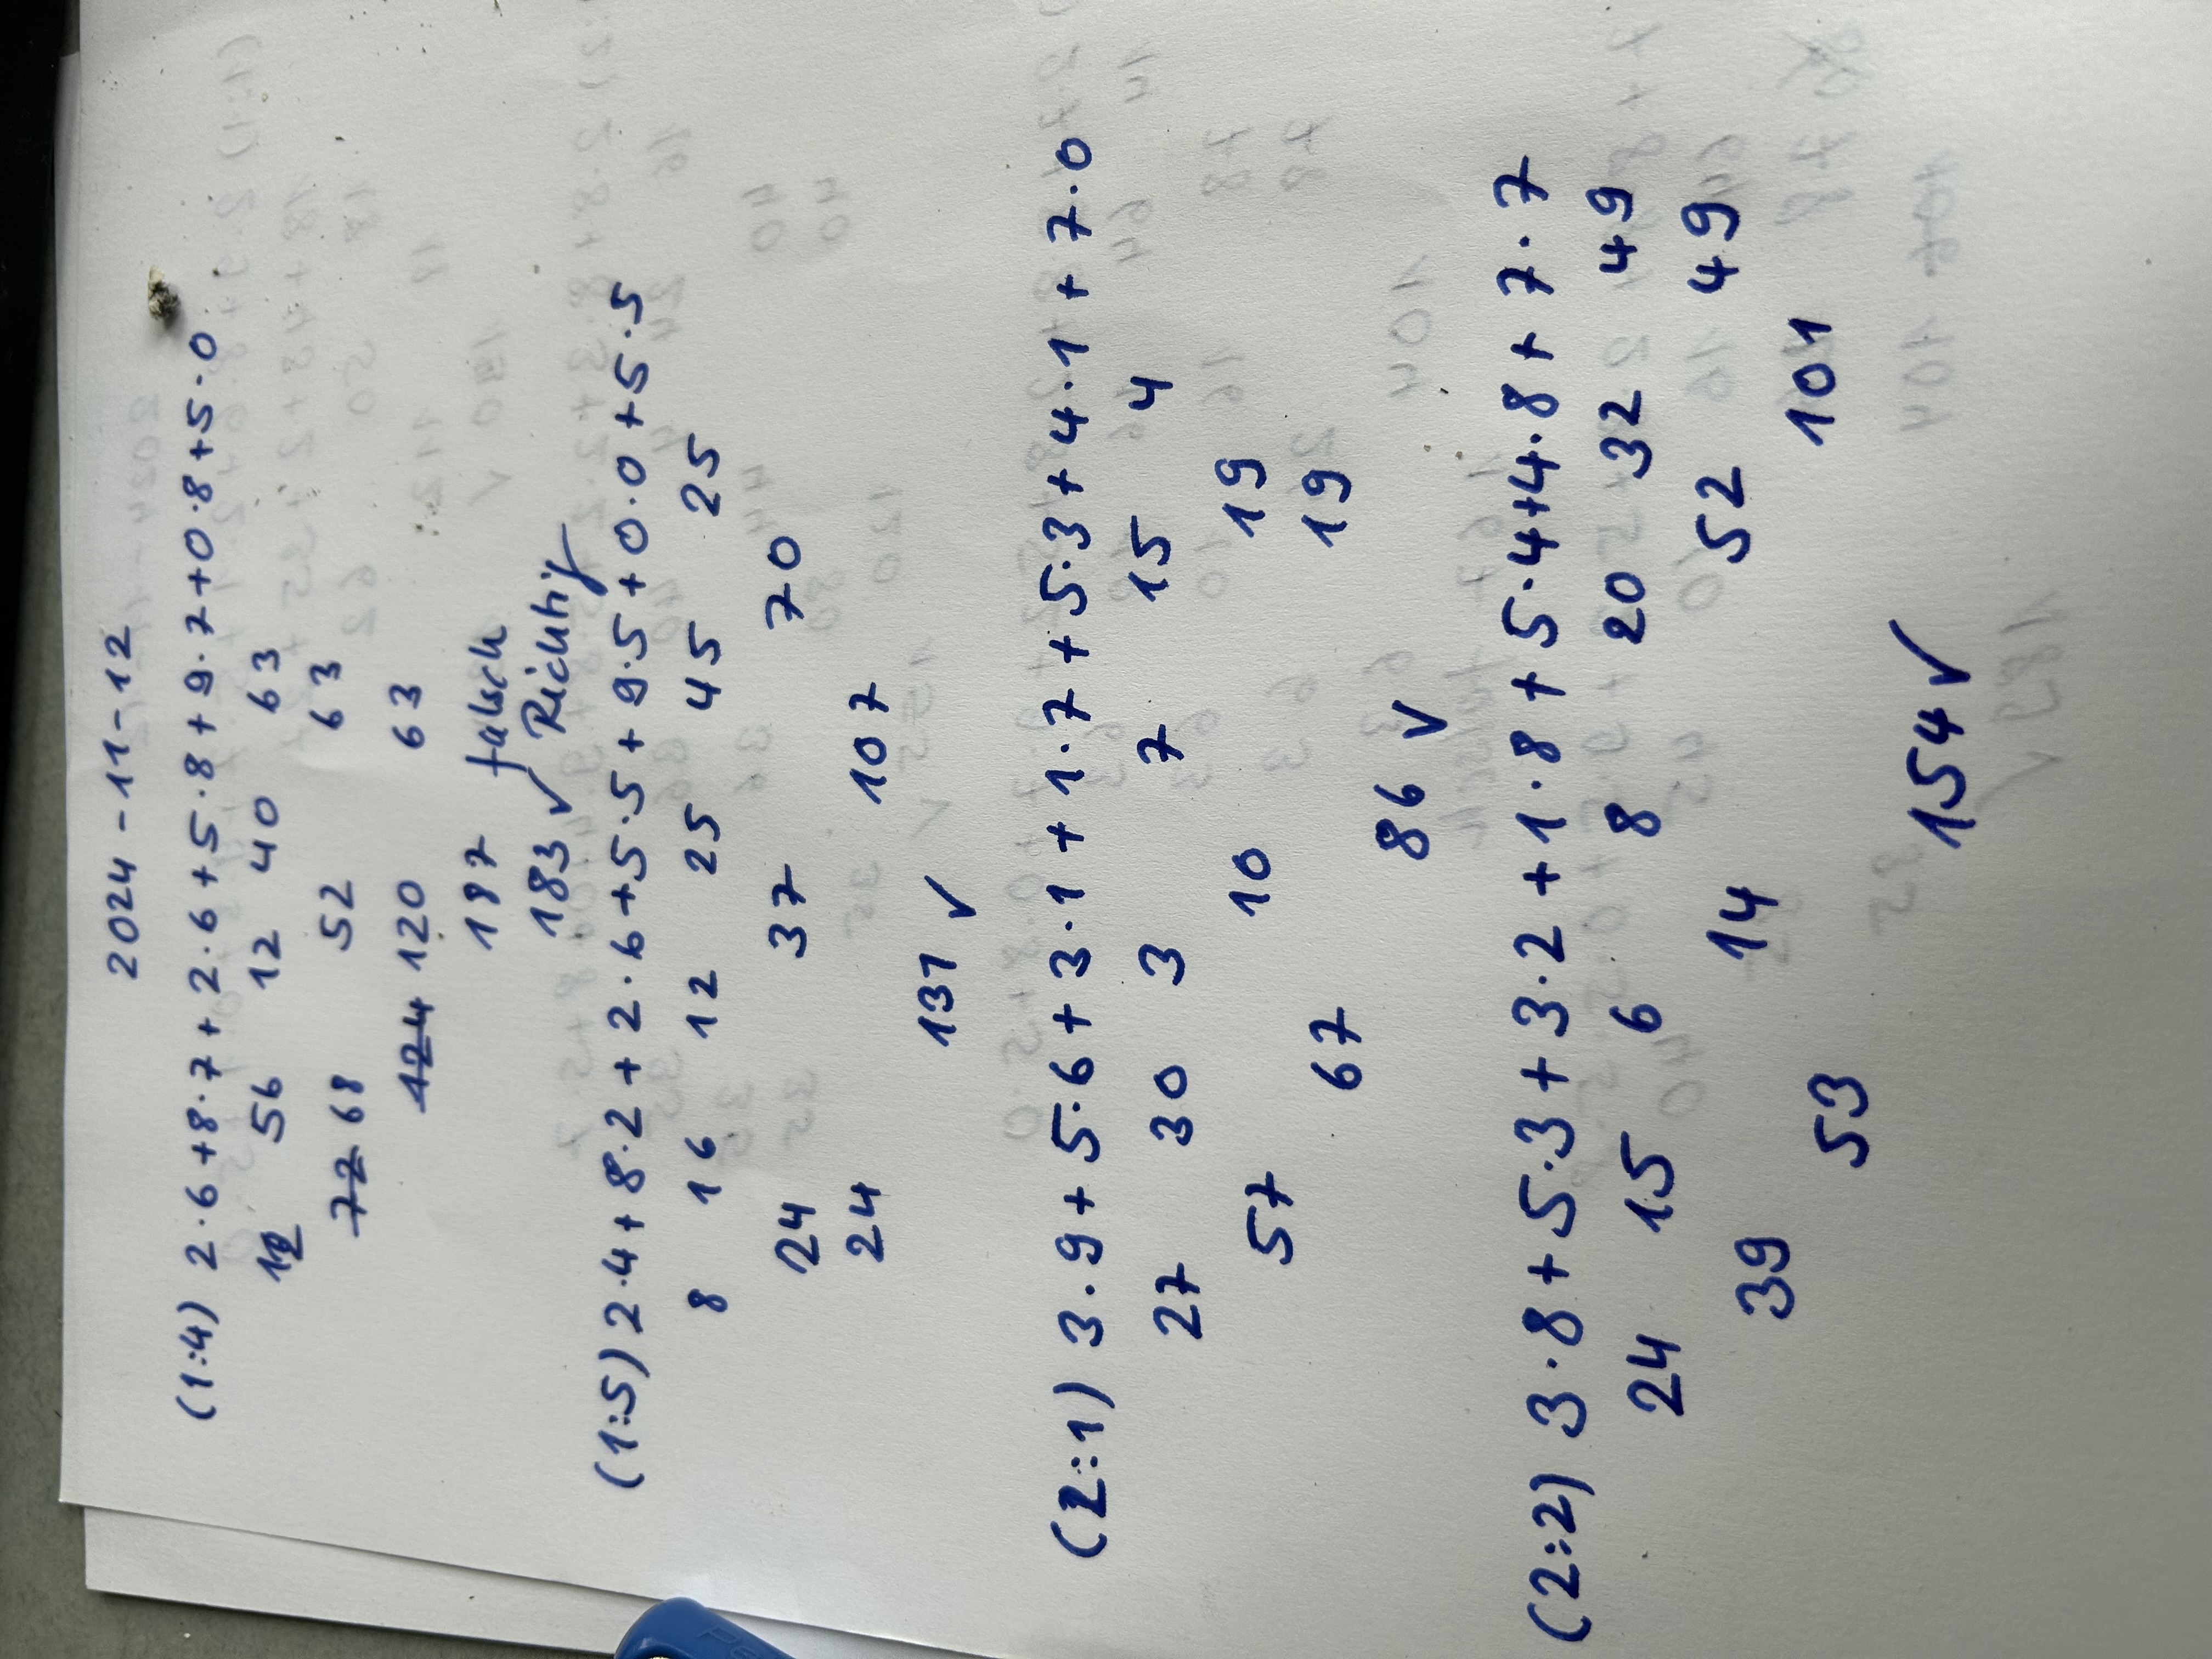 2024-11-12
(1:4) 2·6+8·7+2·6+5·8+9·7+0·8+5·0
12 56 12 40 63
72 68 52 63
124 120 63
187 falsch
183 ✓ Richtig
(1:5) 2·4+8·2+2·6+5·5+9·5+0·0+5·5
8 16 12 25 45 25
24 37 70
24 107
131 ✓
(2:1) 3·9+5·6+3·1+1·7+5·3+4·1+7·0
27 30 3 7 15 4
57 10 19
67 19
86 ✓
(2:2) 3·8+5·3+3·2+1·8+5·4+4·8+7·7
24 15 6 8 20 32 49
39 14 52 49
53 101
154 ✓